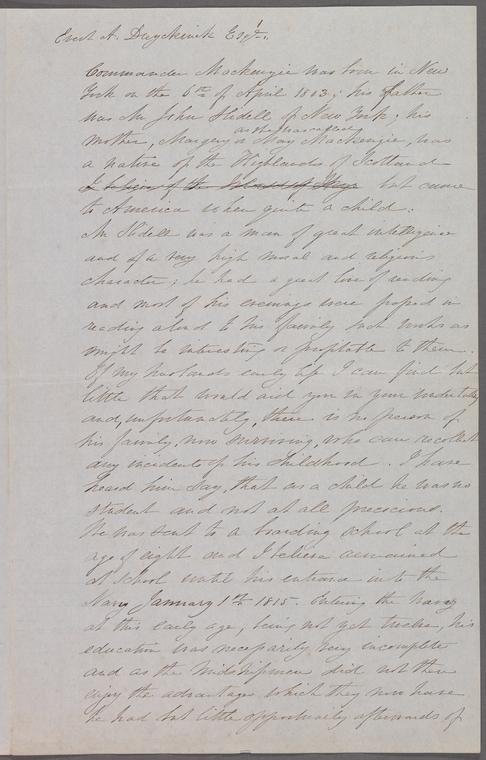 Evert A. Duyckinck Esqr.
Commander Mackenzie was born in New
York on the 6th of April 1803; his father
was Mr John Slidell of New York; his
as she was called
mother, Margery or May Mackenzie, was
a native of the Highlands of Scotland
I believe of the Island of but came
to America when quite a child.
Mr Slidell was a man of great intelligence
and of a very high moral and religious
character; he had a great love of reading
and most of his evenings were passed in
reading aloud to his family such works as
might be interesting or profitable to them.
Of my husbands early life I can find but
little that would aid you in your undertaking
and, unfortunately, there is no person of
his family, now surviving, who can recollect
any incidents of his childhood. I have
heard him say, that as a child he was no
student and not at all precocious.
He was sent to a boarding school at the
age of eight and I believe remained
at school until his entrance into the
Navy January 1st 1815. Entering the navy
at this early age, being not yet twelve, his
education was necessarily very incomplete
and as the Midshipmen did not then
enjoy the advantages which they now have
he had but little opportunity afterwards of